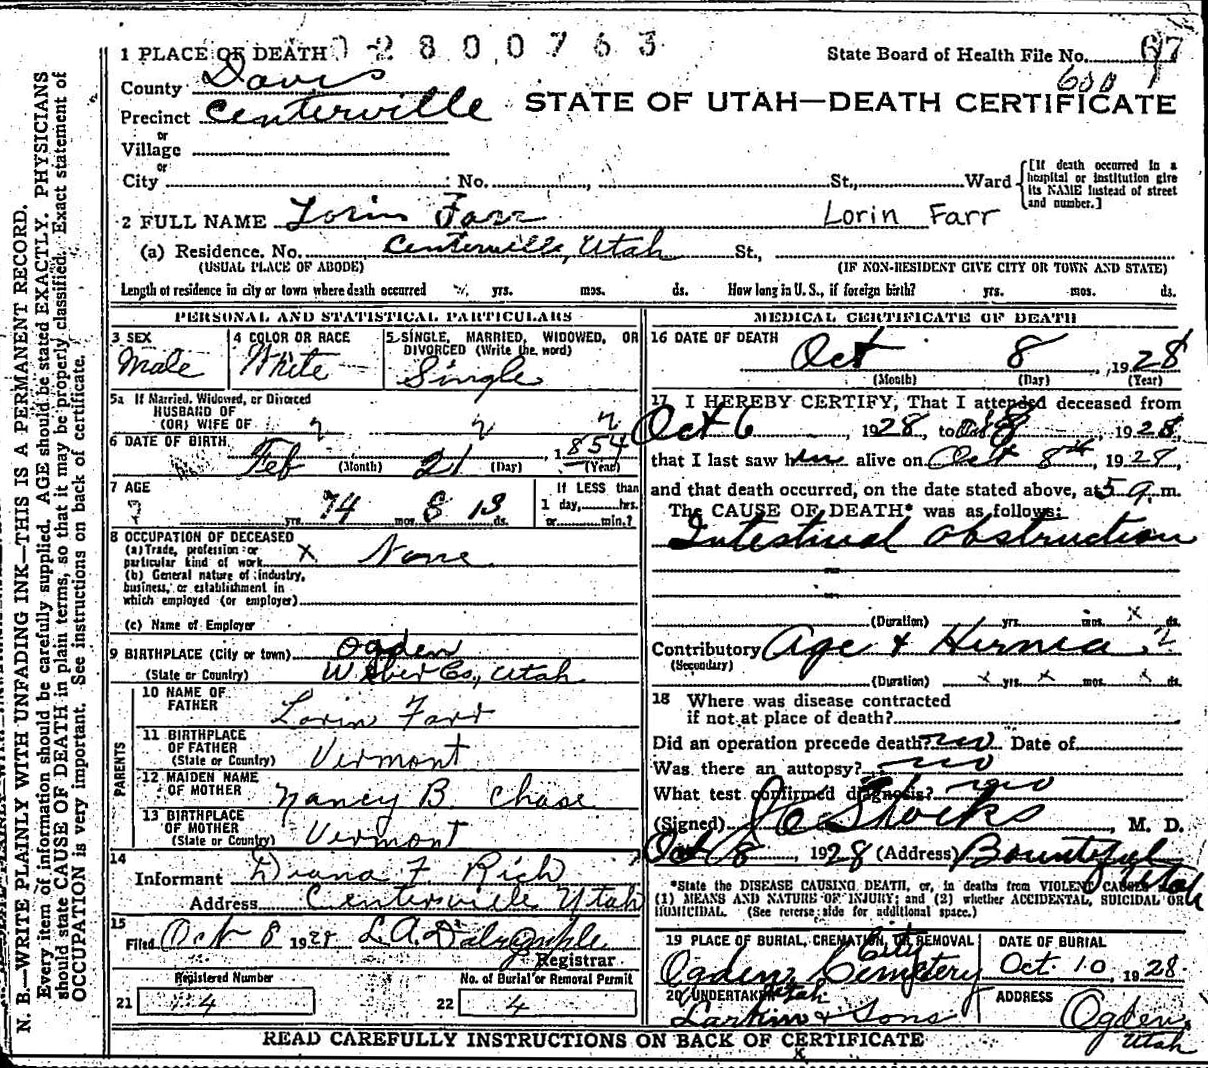 1 PLACE OF DEATH 02800763 State Board of Health File No. 67
600
County Davis
Precinct Centerville STATE OF UTAH—DEATH CERTIFICATE
or
Village
or
City No. , St., Ward [If death occurred in a hospital or institution give its NAME instead of street and number.]
2 FULL NAME Lorin Farr Lorin Farr
(a) Residence. No. Centerville, Utah St.,
(USUAL PLACE OF ABODE) (IF NON-RESIDENT GIVE CITY OR TOWN AND STATE)
Length of residence in city or town where death occurred yrs. mos. ds. How long in U. S., if foreign birth? yrs. mos. ds.
PERSONAL AND STATISTICAL PARTICULARS
3 SEX 4 COLOR OR RACE 5 SINGLE, MARRIED, WIDOWED, OR
DIVORCED (Write the word)
Male White Single
5a If Married, Widowed, or Divorced
HUSBAND OF
(OR) WIFE OF
6 DATE OF BIRTH
Feb (Month) 21 (Day) 1854 (Year)
7 AGE If LESS than
74 yrs. 8 mos. 13 ds. 1 day, hrs.
or min.?
8 OCCUPATION OF DECEASED
(a) Trade, profession or
particular kind of work x None
(b) General nature of industry,
business, or establishment in
which employed (or employer)
(c) Name of Employer
9 BIRTHPLACE (City or town) Ogden
(State or Country) Weber Co., Utah
PARENTS
10 NAME OF
FATHER Lorin Farr
11 BIRTHPLACE
OF FATHER
(State or Country) Vermont
12 MAIDEN NAME
OF MOTHER Nancy B. Chase
13 BIRTHPLACE
OF MOTHER
(State or Country) Vermont
14
Informant Diana F. Rich
Address Centerville Utah
15
Filed Oct 8 1928 L.A. Dalrymple
Registrar
Registered Number No. of Burial or Removal Permit
21 4 22 4
MEDICAL CERTIFICATE OF DEATH
16 DATE OF DEATH
Oct 8 , 1928
(Month) (Day) (Year)
17 I HEREBY CERTIFY, That I attended deceased from
Oct 6 , 1928, to Oct 8 , 1928,
that I last saw him alive on Oct 8th, 1928,
and that death occurred, on the date stated above, at 5 a. m.
The CAUSE OF DEATH* was as follows:
Intestinal obstruction
(Duration) yrs. mos. x ds.
Contributory Age & Hernia ?
(Secondary)
(Duration) x yrs. x mos. x ds.
18 Where was disease contracted
if not at place of death?
Did an operation precede death? no Date of
Was there an autopsy? no
What test confirmed diagnosis? no
(Signed) J C Stocks , M. D.
Oct 8 , 1928 (Address) Bountiful
Utah
*State the DISEASE CAUSING DEATH, or, in deaths from VIOLENT CAUSES
(1) MEANS AND NATURE OF INJURY; and (2) whether ACCIDENTAL, SUICIDAL OR
HOMICIDAL. (See reverse side for additional space.)
19 PLACE OF BURIAL, CREMATION, OR REMOVAL DATE OF BURIAL
Ogden City Cemetery Oct. 10 , 1928.
Utah
20 UNDERTAKER ADDRESS
Larkin & Sons Ogden,
Utah
READ CAREFULLY INSTRUCTIONS ON BACK OF CERTIFICATE
N. B.—WRITE PLAINLY WITH UNFADING INK—THIS IS A PERMANENT RECORD.
Every item of information should be carefully supplied. AGE should be stated EXACTLY. PHYSICIANS
should state CAUSE OF DEATH in plain terms, so that it may be properly classified. Exact statement of
OCCUPATION is very important. See instructions on back of certificate.